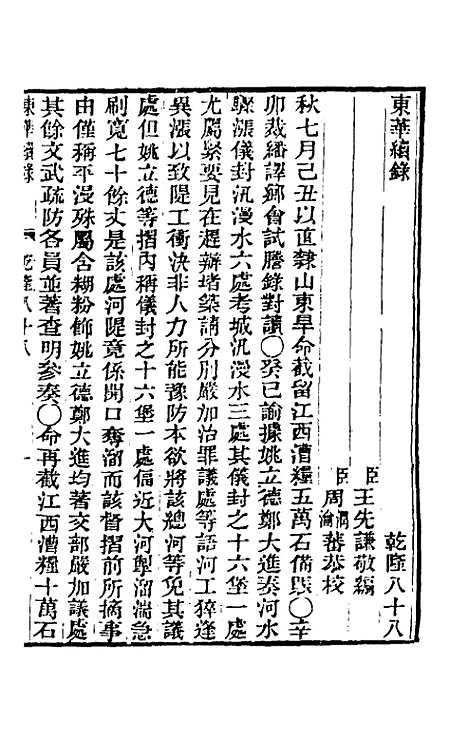 東華續錄
乾隆八十八
臣王先謙敬編
臣周潤蕃瀹蕃恭校
秋七月己丑以直隸山東旱命截留江西漕糧五萬石備賑○辛
卯裁繙譯鄉會試謄錄對讀○癸巳諭據姚立德鄭大進奏河水
驟漲儀封汛漫水六處考城汛漫水三處其儀封之十六堡一處
尤屬緊要見在趕辦堵築請分別嚴加治罪議處等語河工猝逢
異漲以致隄工衝決非人力所能豫防本欲將該總河等免其議
處但姚立德等摺內稱儀封之十六堡一處偪近大河掣溜湍急
刷寬七十餘丈是該處河隄竟係開口奪溜而該督摺前所摘事
由僅稱平漫殊屬含糊粉飾姚立德鄭大進均著交部嚴加議處
其餘文武疏防各員並著查明參奏○命再截江西漕糧十萬石
東華續錄 乾隆八十八 一